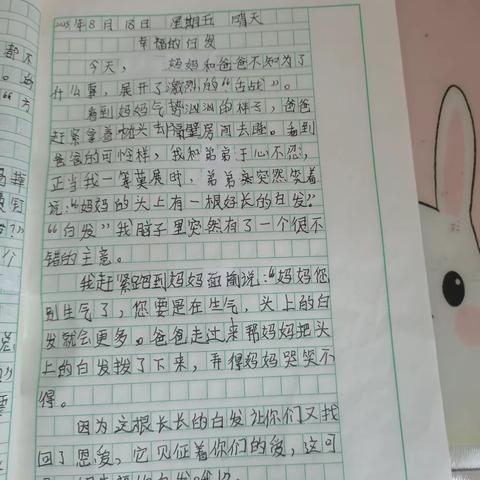 都不
。的
“方
2023年8月18日 星期五 晴天
幸福的白发
今天, 妈妈和爸爸不知为了
什么事,展开了激烈的“舌战”。
看到妈妈气势汹汹的样子,爸爸
赶紧拿着枕头去隔壁房间去睡。看到
爸爸的可怜样,我和弟弟于心不忍,
正当我一筹莫展时,弟弟突然笑着
说:“妈妈的头上有一根好长的白发?”
“白发”我脖子里突然有了一个很不
错的主意。
我赶紧跑到妈妈面前说:“妈妈您
别生气了,您要是在生气,头上的白
发就会更多。爸爸走过来帮妈妈把头
上的白发拨了下来,弄得妈妈哭笑不
得。
因为这根长长的白发让你们又找
回了恩爱,它见征着你们的爱,这可